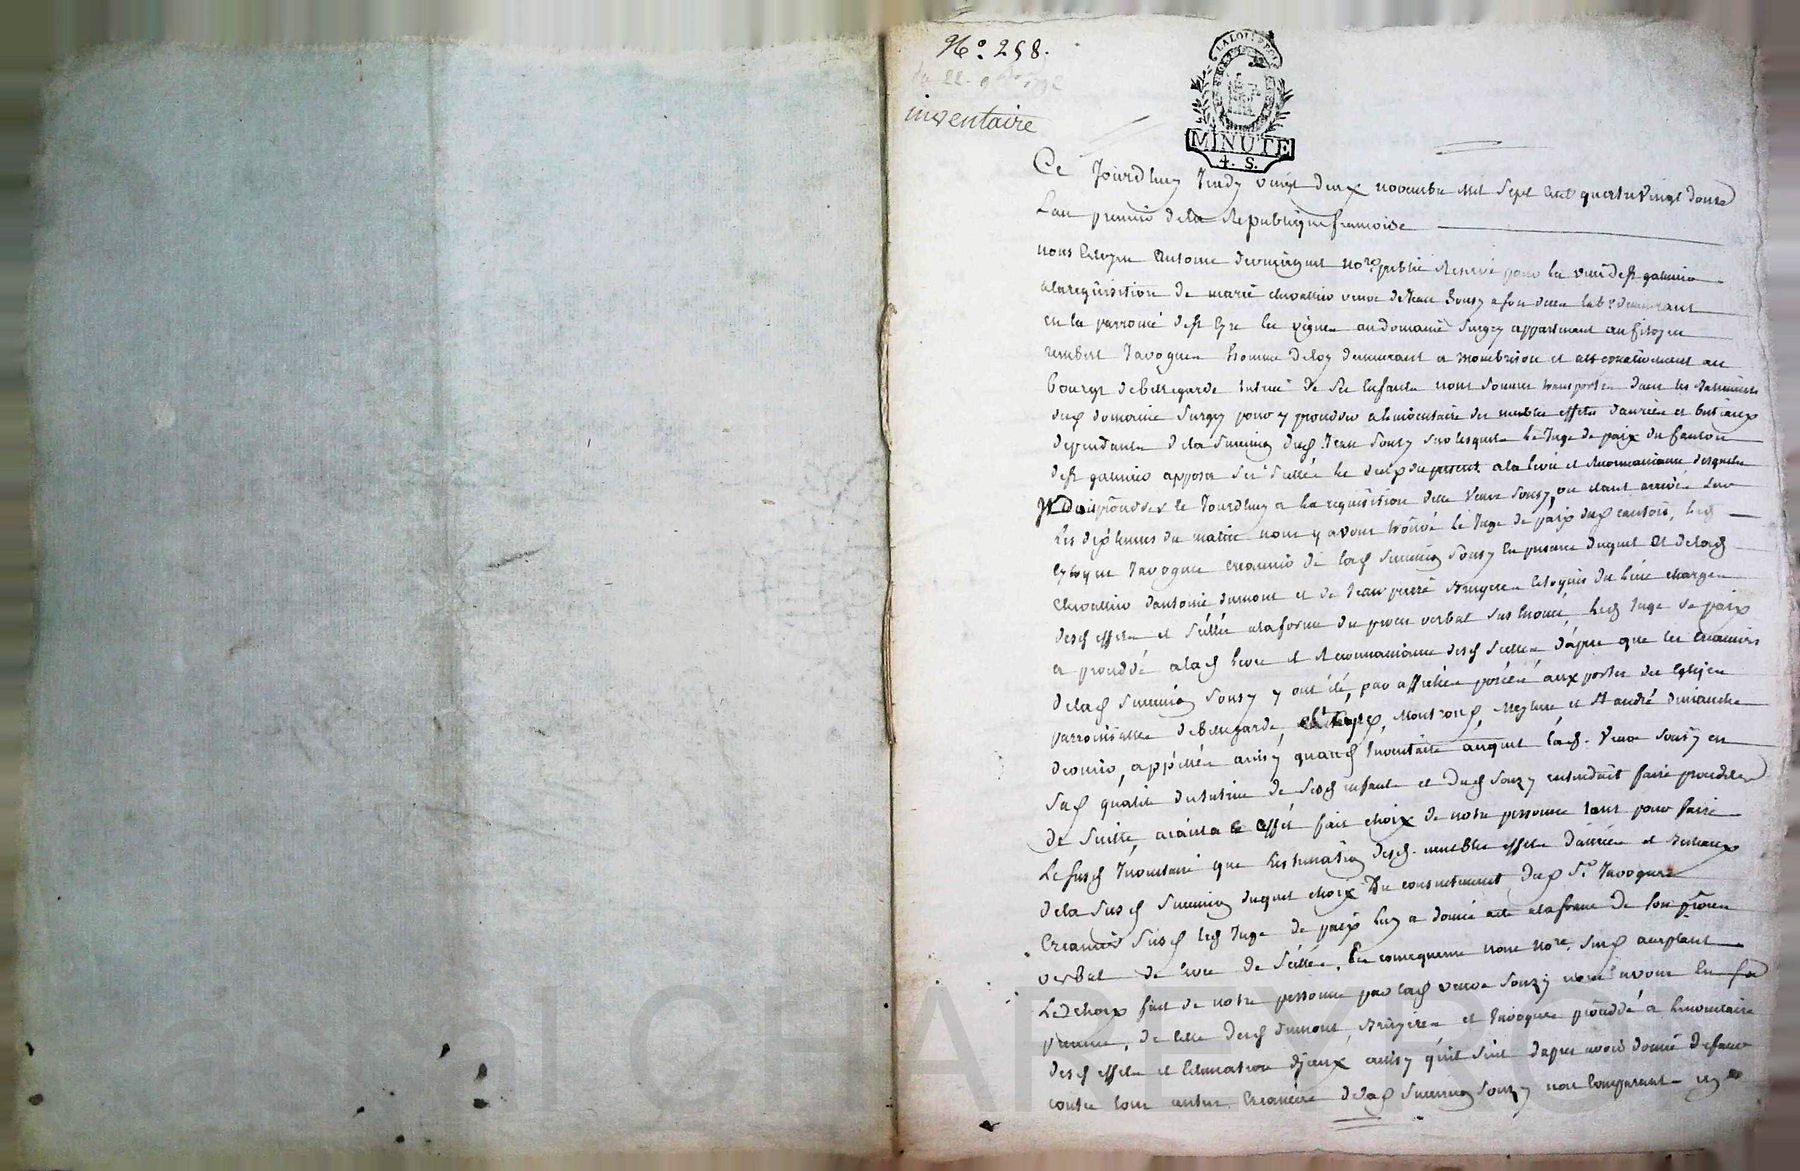 N.° 258.
du 22. 9bre 1792
inventaire
LA LOI
MINUTE
4. S.
Ce Jourdhuy Jeudy vingt deux novembre mil sept cent quatre vingt douze
Lan premier de la Republique francoise
nous Citoyen Antoine notre public pour la ville de st galmier
a la requisition de marie chevallier veuve de Jean Souzy demeurant
en la parroisse de st les vignes au domaine Surgey appartenant au Citoyen
rembert Javogues homme de loy demeurant a Montbrison et au
bourg de Bellegarde tutrice de ses enfants nous sommes transportés dans les batiments
dud domaine Surgey pour y proceder a linventaire des meubles effets danrées et bestiaux
dependants de la succession dud Jean Souzy sur lesquels le Juge de paix du Canton
de st galmier apposa ses scellés le du present a la levée et reconnaissance desquels
proceder ce Jourdhuy a la requisition de la Veuve Souzy, ou etant arrivés sur
les dix heures du matin nous y avons trouvé le Juge de paix dud canton, led
Citoyen Javogues creancier de lad succession Souzy en presence duquel et de lad
chevallier dantoine dumont et de Jean pierre Bruyere Citoyens du lieu chargés
desd effets et scellés a la forme du proces verbal sus enoncé, led Juge de paix
a procedé a lad levée et reconnaissance desd scellés dapres que les creanciers
de lad succession Souzy y ont été, par affiches posées aux portes des Eglises
parroissialles de Bellegarde, Montrond, Meylieu et St andré dimanche
dernier, appellés ainsy quaud Inventaire auquel lad. Veuve Souzy en
sad qualité de tutrice de sesd enfants et dud Souzy entendait faire proceder
de suitte, aianta cet effet fait choix de notre personne tant pour faire
le susd Inventaire que lestimation desd. meubles effets danrées et Bestiaux
de la susd succession duquel choix Du consentement dud Sr Javogues
Creancier susd led Juge de paix luy a donné acte a la forme de son proces
verbal de levée de scellés. En consequence nous Nore. susd acceptant
le choix fait de notre personne par lad veuve Souzy nous avons en sa
presence, de celle desd dumont, Bruyere et Javogues procédé a linventaire
desd effets et Estimation diceux ainsy quil suit dapres avoir donné defaut
contre tous autres Creanciers de lad succession Souzy non comparants